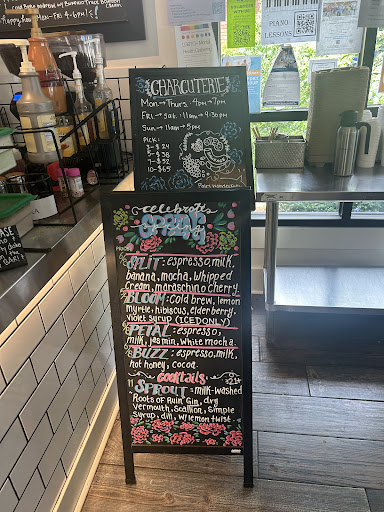 Cold Brew
Happy Hour Mon-Fri 4-6pm's!
PIANO
LESSONS
CHARCUTERIE
Mon → Thurs: 4pm → 7pm
Fri → Sat: 11am → 9:30pm
Sun → 11am → 5pm
Pick:
3 - $24
5 - $38
7 - $52
10 - $65
celebrate
SPRING
SPLIT: espresso, milk,
banana, mocha, whipped
cream, maraschino cherry
BLOOM: cold brew, lemon
myrtle, hibiscus, elderberry,
violet syrup (ICED ONLY)
PETAL: espresso,
milk, jasmin, white mocha
BUZZ: espresso, milk,
hot honey, cocoa
Cocktails
21+
$11
SPROUT: milk-washed
"Roots of Ruin" Gin, dry
vermouth, scallion, simple
syrup, dill, w/ lemon twist